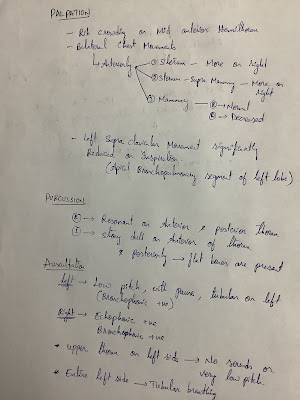 PALPATION
- Rib crowding on Mid anterior Hemithorax
- Bilateral Chest Movements
↳ Anteriorly → ① Sternum - More on right
② Sternum - Supra Mammary - More on right
③ Mammary → Ⓡ → Normal
Ⓛ → Decreased
- Left Supra clavicular Movement significantly
Reduced on Inspiration
(Apical Bronchopulmonary segment of left lobe)
PERCUSSION
Ⓡ → Resonant on Anterior & posterior thorax
→ stony dull on Anterior of thorax
& posteriorly → flat are present
Auscultation
Left → Low pitch, with pause, tubular on left
(Bronchophonic +ve)
Right → Echophonic +ve
Bronchophonic +ve
* upper thorax on left side → No sounds or
very low pitch.
* Entire left side → Tubular breathing